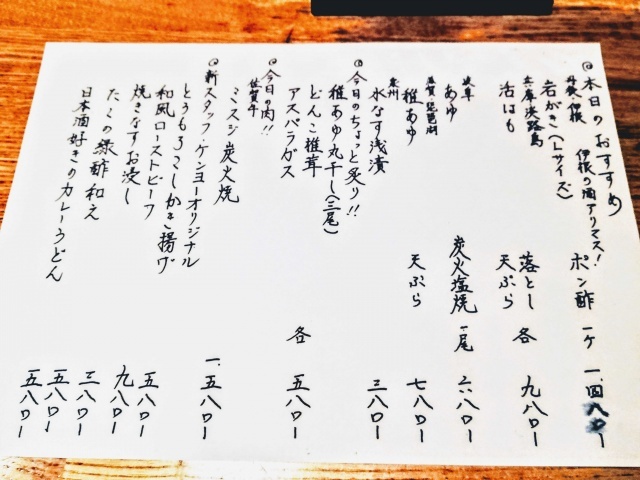 ◎本日のおすすめ
丹後・伊根 伊根の酒アリマス!
岩がき(Lサイズ) ポン酢 一ケ 一.四八〇ー
兵庫淡路島
活はも 落とし 天ぷら 各 九八〇ー
岐阜
あゆ 炭火塩焼 一尾 六八〇ー
滋賀・琵琶湖
稚あゆ 天ぷら 七八〇ー
泉州
水なす浅漬 三八〇ー
◎今日のちょっと炙り!!
稚あゆ丸干し(三尾)
どんこ椎茸
アスパラガス 各 五八〇ー
◎今日の肉!!
佐賀牛
ミスジ炭火焼 一.五八〇ー
◎新スタッフ・ケンヨーオリジナル
とうもろこしかき揚げ 五八〇ー
和風ローストビーフ 九八〇ー
焼きなすお浸し 三八〇ー
たこの緑酢和え 五八〇ー
日本酒好きのカレーうどん 五八〇ー